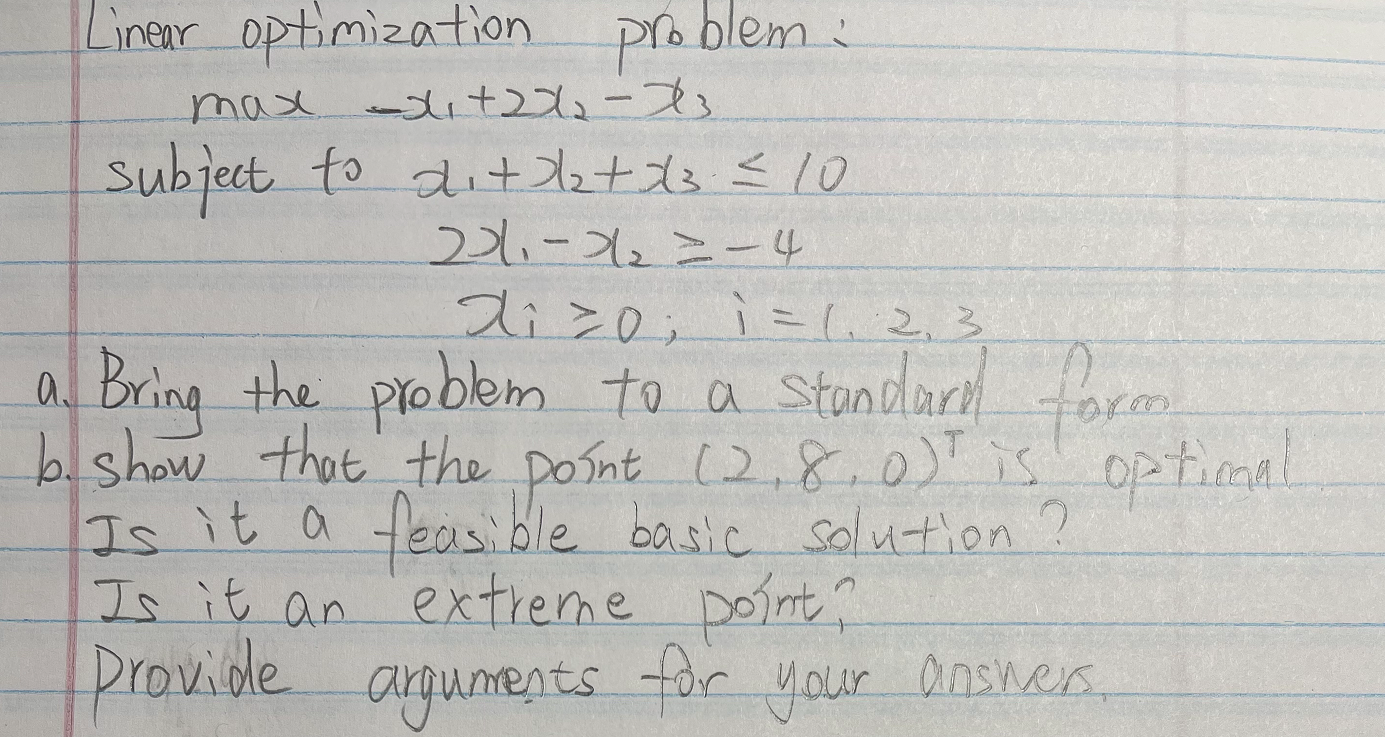 Linear optimization problem:
max -x₁+2x₂-x₃
subject to x₁+x₂+x₃ ≤ 10
2x₁-x₂ ≥ -4
xᵢ ≥ 0; i=1, 2, 3
a. Bring the problem to a standard form
b. show that the point (2, 8, 0)ᵀ is optimal.
Is it a feasible basic solution?
Is it an extreme point?
Provide arguments for your answers.